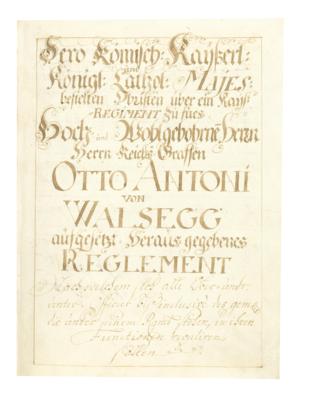 Dero Römisch: Kayserl:
und
Königl: Cathol: MAJES:
bestelten Obristen über ein Kays:
REGIMENT Zu fues
Hoch und Wohlgebohrne Herrn
Herrn Reichs Graffen
OTTO ANTONI
VON
WALSEGG
aufgesetzt Heraus gegebenes
REGLEMENT
Nach welchem sich alle Ober und
unter Officier
die unter seinem stehen, in ihren
Functionen reguliren
sollen